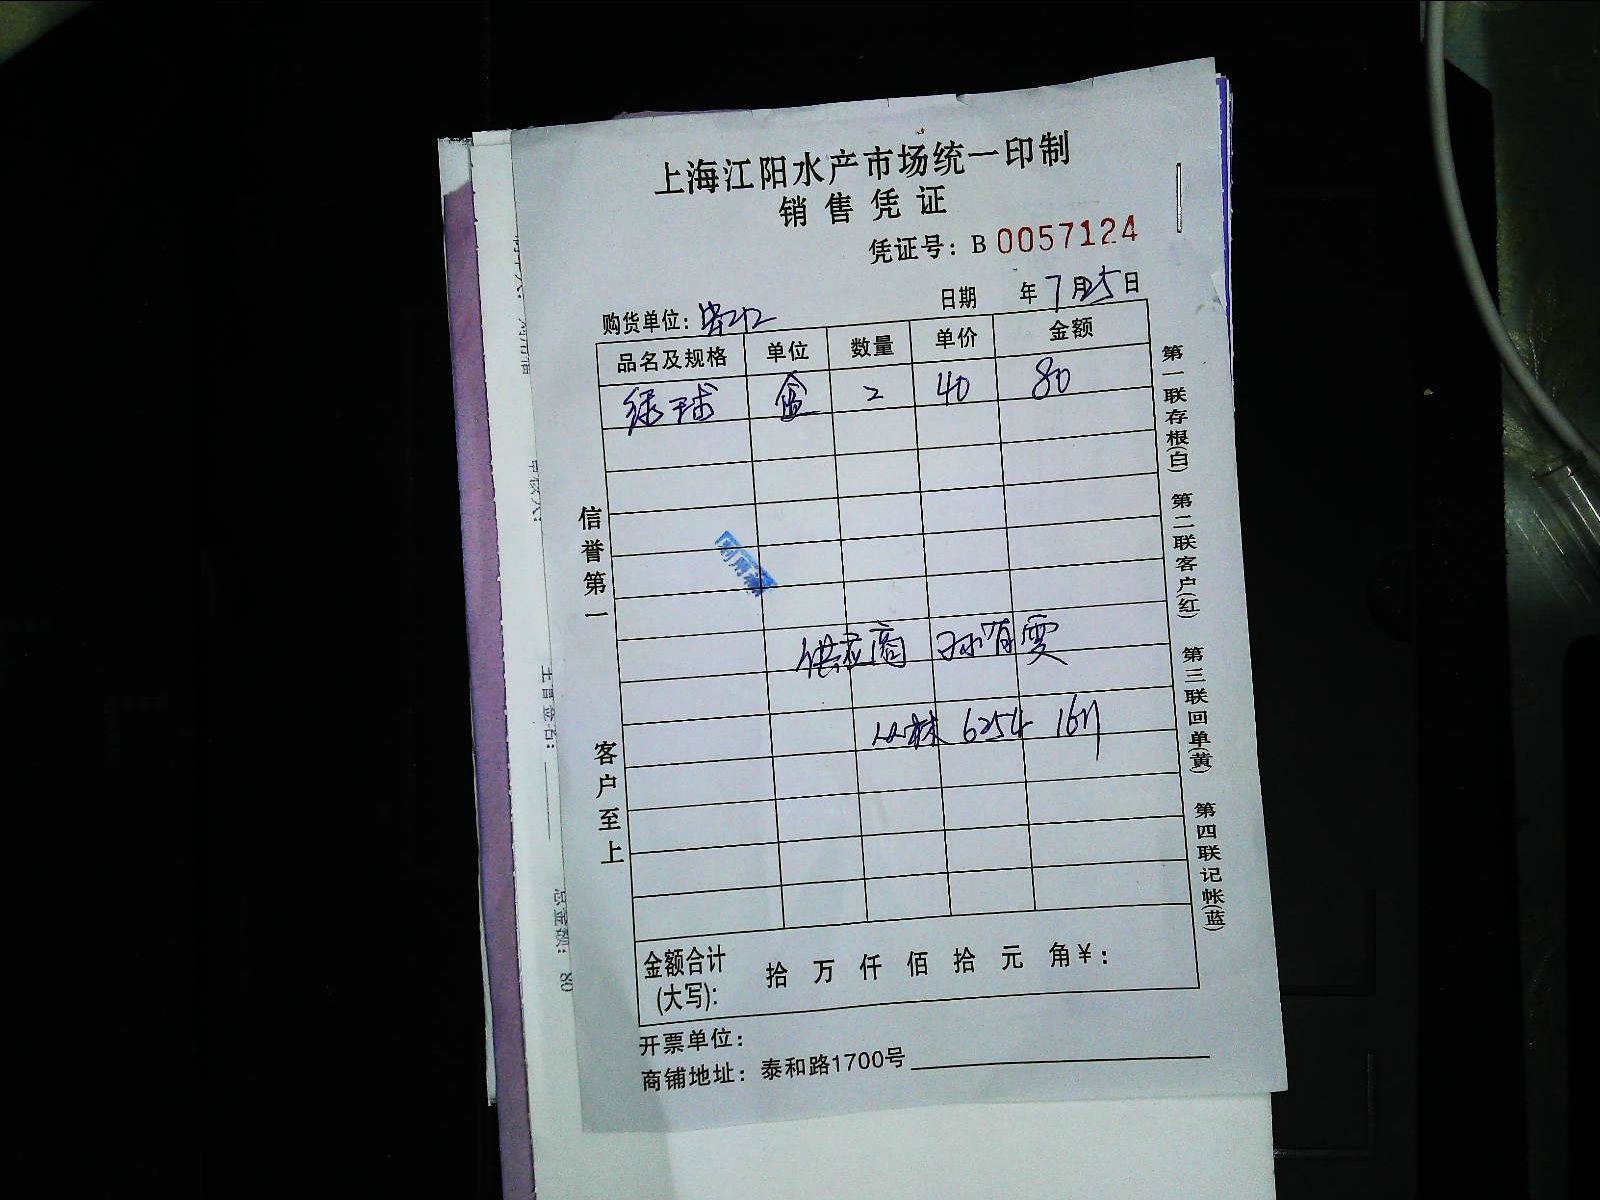 上海江阳水产市场统一印制
销售凭证
凭证号：B 0057124
购货单位： 日期 年7月25日
品名及规格 单位 数量 单价 金额
绿球 盒 2 40 80
供应商 孙育雯
6254 1611
金额合计(大写)： 拾 万 仟 佰 拾 元 角¥：
开票单位：
商铺地址：泰和路1700号
信誉第一
客户至上
第一联存根(白)
第二联客户(红)
第三联回单(黄)
第四联记帐(蓝)
主管签名：
总金额： 80